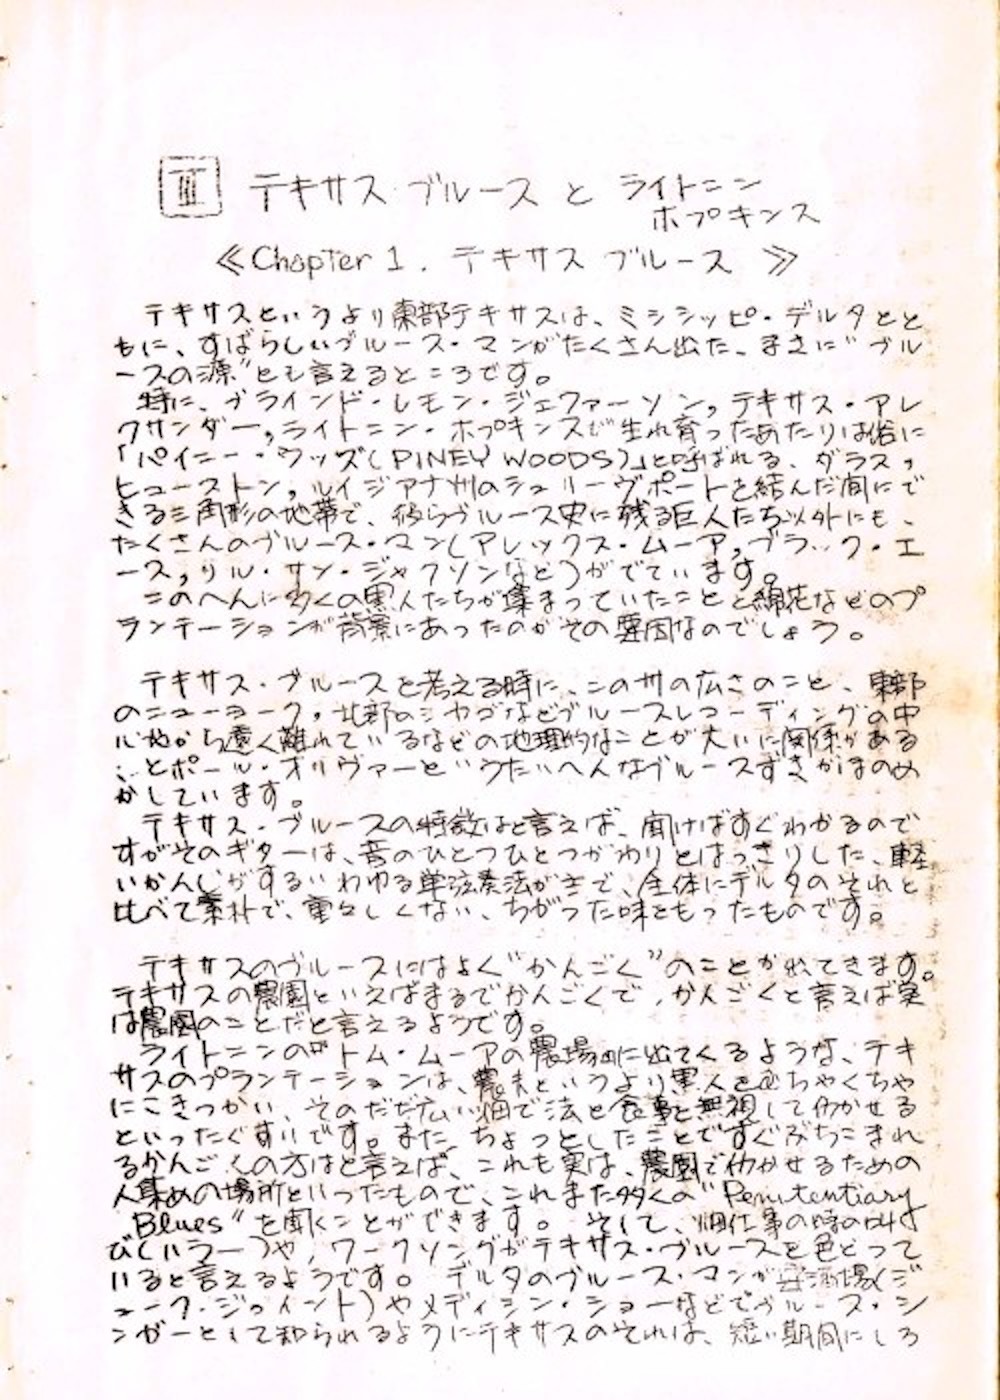 III テキサス・ブルース と ライトニン
ホプキンス
≪Chapter 1. テキサス ブルース ≫
テキサスというより東部テキサスは、ミシシッピ・デルタとと
もに、すばらしいブルース・マンがたくさん出た、まさに"ブル
ースの源"とも言えるところです。
特に、ブラインド・レモン・ジェファーソン,テキサス・アレ
クサンダー,ライトニン・ホプキンスが生れ育ったあたりは俗に
「パイニー・ウッズ(PINEY WOODS)」と呼ばれる、ダラス,
ヒューストン,ルイジアナ州のシュリーヴポートを結んだ間にで
きる三角形の地帯で、彼らブルース史に残る巨人たち以外にも、
たくさんのブルース・マン(アレックス・ムーア,ブラック・エ
ース,リル・サン・ジャクソンなど)がでています。
このへんに多くの黒人たちが集まっていたことと綿花などのプ
ランテーションが背景にあったのがその要因なのでしょう。
テキサス・ブルースと考える時に、この州の広さのこと、東部
のニューヨーク,北部のシカゴなどブルースレコーディングの中
心地から遠く離れているなどの地理的なことが大いに関係がある
ことポール・オリヴァーというたいへんなブルースずきがほのめ
かしています。
テキサス・ブルースの特徴はと言えば、聞けばすぐわかるので
すがそのギターは、音のひとつひとつがわりとはっきりした、軽
いかんじがするいわゆる単弦奏法が主で、全体にデルタのそれと
比べて素朴で、重々しくない、ちがった味をもったものです。
テキサスのブルースにはよく"かんごく"のことが出てきます。
テキサスの農園といえばまるでかんごくで,かんごくと言えば実
は農園のことだと言えるようです。
ライトニンの『トム・ムーアの農場』に出てくるような、テキ
サスのプランテーションは、農夫というより黒人をむちゃくちゃ
にこきつかい、そのだだ広い畑で法と食事を無視して仂かせる
といったぐすいです。また、ちょっとしたことですぐぶちこまれ
るかんごくの方はと言えば、これも実は、農園で仂かせるための
人集めの場所といったもので、これまた多くの"Penitentiary
Blues"を聞くことができます。 そして、畑仕事の時の叫
び(ハラー)や,ワークソングがテキサス・ブルースを色どって
いると言えるようです。 デルタのブルース・マンが 酒場(ジ
ューク・ジョイント)やメディシン・ショーなどでブルース・シ
ンガーとして知られるようにテキサスのそれは、短い期間にしろ